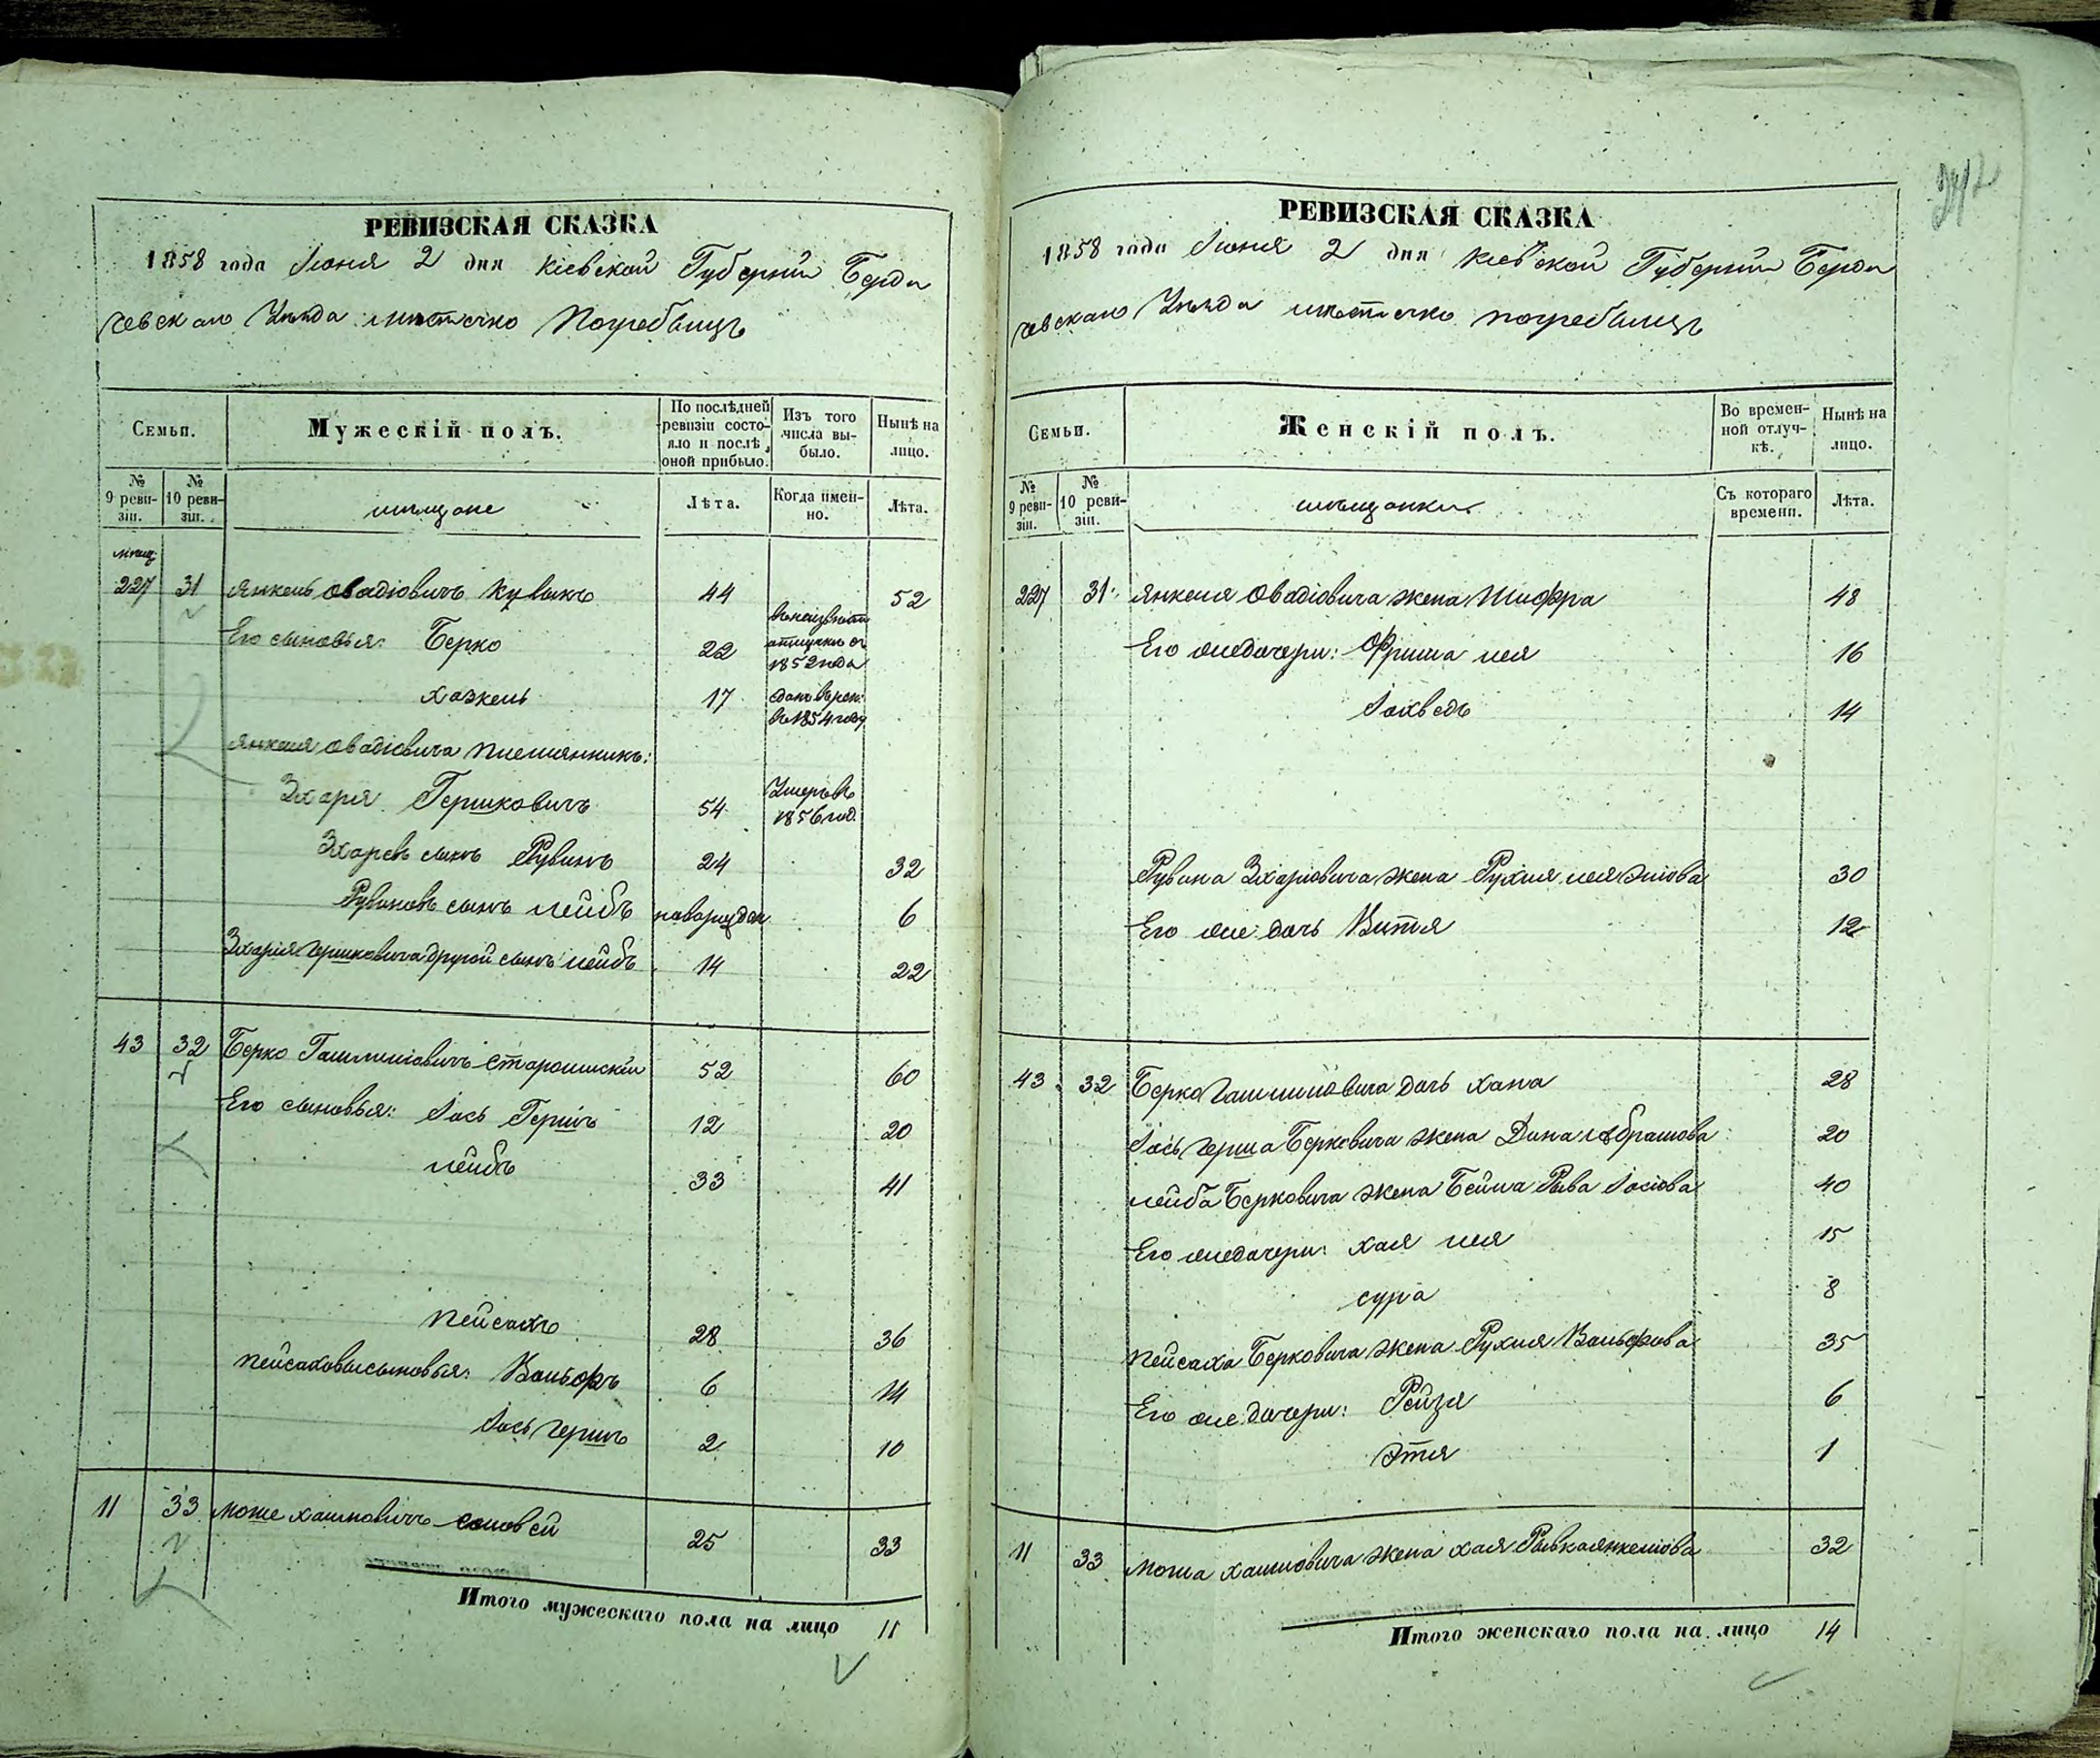 РЕВИЗСКАЯ СКАЗКА
1858 года Іюня 2 дня Кіевской Губерніи Берди
чевскаго Уѣзда мѣстечко Погребищъ
Семьи.
Мужескій полъ.
По послѣдней ревизіи состояло и послѣ оной прибыло.
Изъ того числа выбыло.
Нынѣ на лицо.
№ 9 ревизіи.
№ 10 ревизіи.
мѣщане
Лѣта.
Когда именно.
Лѣта.
мѣщ.
227 31 Янкель Овадіовичъ Кулыкъ 44 52
Его сыновья: Берко 22 отлучкѣ съ 1852 года
Хазкель 17 1854 году
Янкеля Овадіовича племянникъ:
Зхарія Гершковичъ 54 Умеръ въ 1856 год.
Зхаріевъ сынъ Рувинъ 24 32
Рувиновъ сынъ Лейбъ новорожден 6
Зхарія Гершковича другой сынъ Лейбъ 14 22
43 32 Берко Гашлиліовичъ Старошискій 52 60
Его сыновья: Іось Гершъ 12 20
Лейбъ 33 41
Пейсахъ 28 36
Пейсаховы сыновья: Вольфъ 6 14
Іось Гершъ 2 10
11 33 Моше Хаимовичъ Соловей 25 33
Итого мужескаго пола на лицо 11
РЕВИЗСКАЯ СКАЗКА
1858 года Іюня 2 дня Кіевской Губерніи Берди
чевскаго Уѣзда мѣстечко Погребищъ
Семьи.
Женскій полъ.
Во временной отлучкѣ.
Нынѣ на лицо.
№ 9 ревизіи.
№ 10 ревизіи.
мѣщанки
Съ котораго времени.
Лѣта.
227 31 Янкеля Овадіовича жена Шифра 48
Его же дочери: Фрима Лея 16
Іохведъ 14
Рувина Зхаріовича жена Рухля Лея Эліова 30
Его же дочь Витя 12
43 32 Берко Гашлиліовича дочь Хана 28
Іось Герша Берковича жена Дина Абрамова 20
Лейба Берковича жена Бейла Рыва Іосіова 40
Его же дочери: Хая Лея 15
Сура 8
Пейсаха Берковича жена Рухля Вольфова 35
Его же дочери: Рейзя 6
Этя 1
11 33 Моша Хаимовича жена Хая Рывка Янкеліова 32
Итого женскаго пола на лицо 14